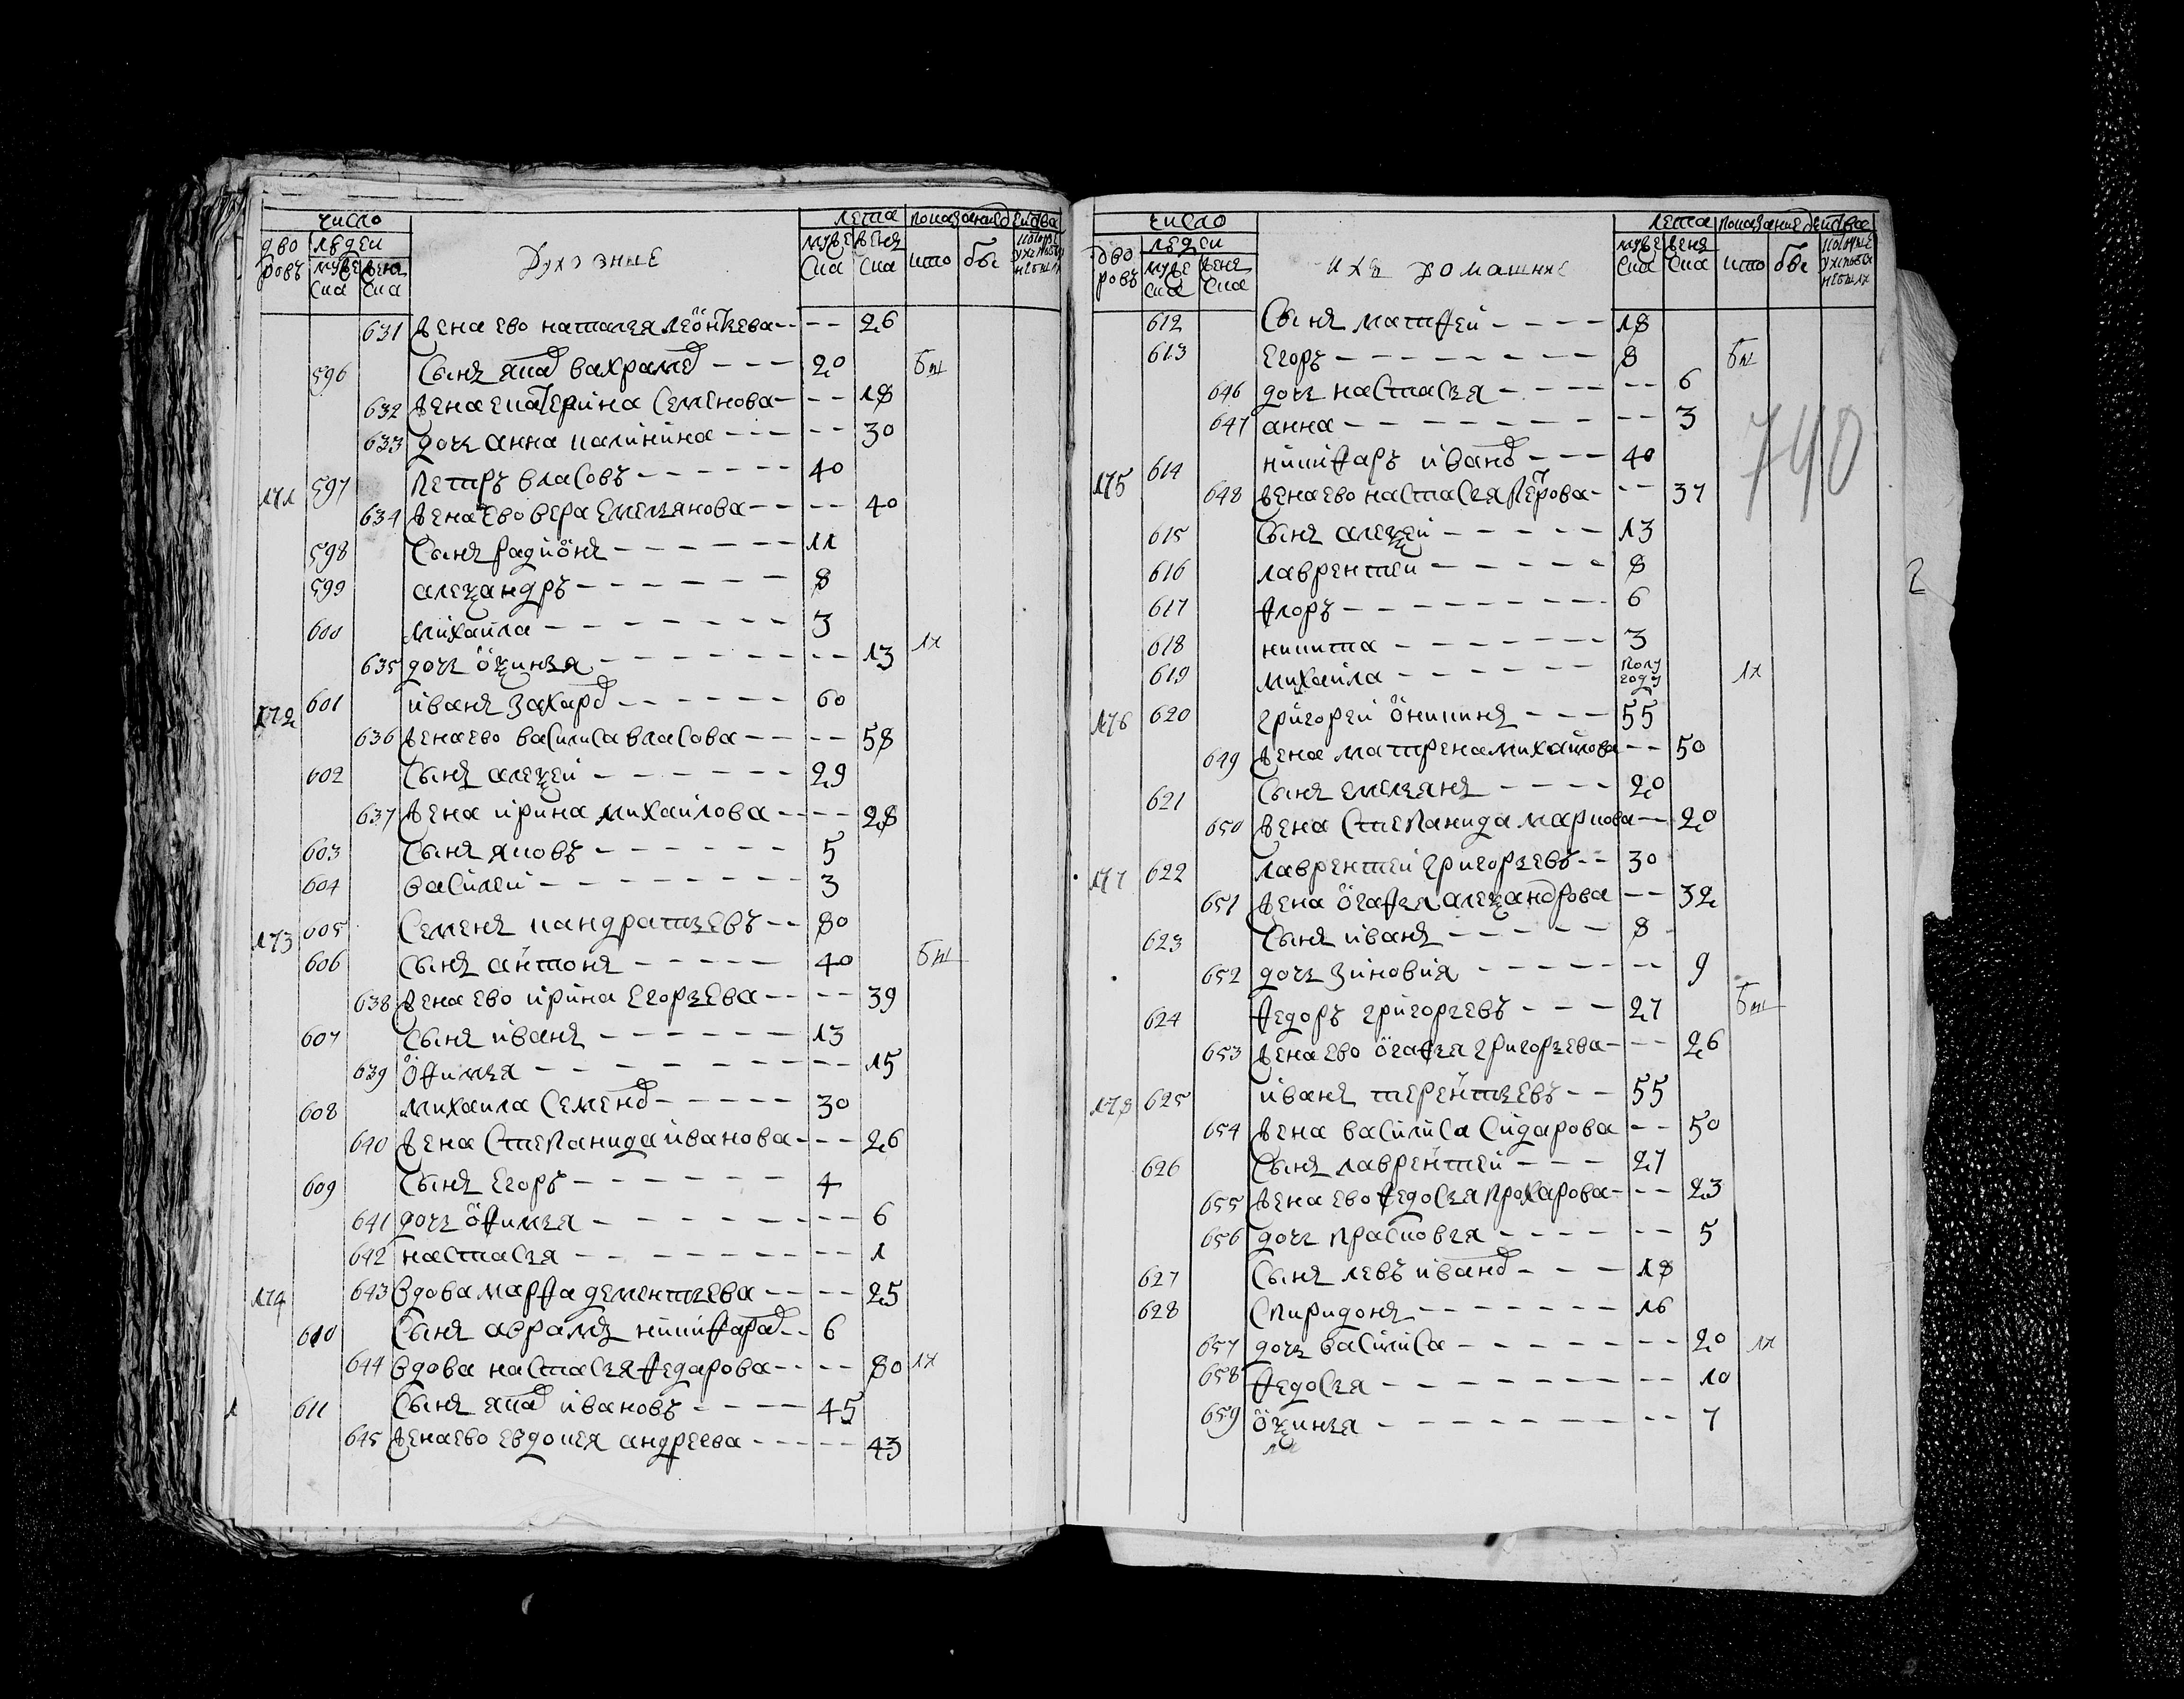 число
лета показание действа
дво ровъ
людеи
мужеска женска
Духовние
мужеска женска
кто
631 жена ево наталья леонтьева - - - - 26
596 сынъ яков вахрамев - - - 20 бы
632 жена екатерина семенова - - - 18
633 дочь анна калинина - - - - - 30
171 597 петръ власовъ - - - - - - 40
634 жена ево вера емельянова - - - - 40
598 сынъ радионъ - - - - - - - 11
599 алеѯандръ - - - - - - 8
600 михаила - - - - - - - 3
635 дочь оѯинья - - - - - - - - - 13 их
172 601 иванъ захаров - - - - - - 60
636 жена ево василиса власова - - - - 58
602 сынъ алеѯеи - - - - - - 29
637 жена ирина михаилова - - - - 28
603 сынъ яковъ - - - - - - 5
604 василеи - - - - - - - - 3
173 605 семенъ кандратьевъ - - 80
606 сынъ антонъ - - - - - 40 бы
638 жена ево ирина егорьева - - - - 39
607 сынъ иванъ - - - - - - 13
639 оѳимья - - - - - - - - - 15
608 михаила семенов - - - - - 30
640 жена степанида иванова - - - 26
609 сынъ егоръ - - - - - - 4
641 дочь оѳимья - - - - - - - - 6
642 настасья - - - - - - - - - 1
174 643 вдова марѳа дементьева - - - - 25
610 сынъ аврамъ никиѳаров - - 6
644 вдова настасья ѳедарова - - - - 80 их
1 611 сынъ яков ивановъ - - - - 45
645 жена ево евдокея андреева - - - - - 43
число
лета показание действа
дво ровъ
людеи
мужеска женска
ихъ домашние
мужеска женска
кто
612 сынъ матѳеи - - - - 18
613 егоръ - - - - - - - - 8 бы
646 дочь настасья - - - - - - 6
647 анна - - - - - - - - - - 3
740
175 614 никиѳаръ иванов - - - 40
648 жена ево настасья петрова - - - 37
615 сынъ алеѯеи - - - - - 13
616 лаврентеи - - - - - - 8
2
617 ѳлоръ - - - - - - - - 6
618 никита - - - - - - - 3
619 михаила - - - - - - полу году их
176 620 григореи оникинъ - - - 55
649 жена матрена михаилова - - 50
621 сынъ емельянъ - - - - 20
650 жена степанида маркова - - 20
177 622 лаврентеи григорьевъ - - 30
651 жена огаѳья алеѯандрова - - 32
623 сынъ иванъ - - - - - 8
652 дочь зиновия - - - - - - - 9
624 ѳедоръ григорьевъ - - - 27 бы
653 жена ево огаѳья григорьева - - - 26
178 625 иванъ терентьевъ - - 55
654 жена василиса сидарова - - 50
626 сынъ лаврентеи - - - 27
655 жена ево ѳедосья прохарова - - - 23
656 дочь прасковья - - - - - - 5
627 сынъ левъ иванов - - - 18
628 спиридонъ - - - - - - - 16
657 дочь василиса - - - - - - - - 20 их
658 ѳедосья - - - - - - - - - 10
659 оѯинья - - - - - - - - - 7